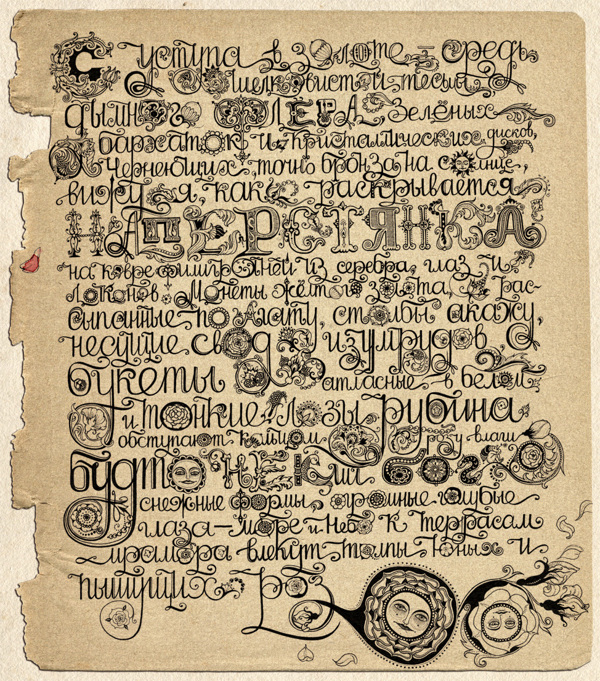 С уступа в золоте – средь
шелковистой тесьмы,
дымного флёра, зелёных
бархаток и кристаллических дисков,
Чернеющих точно бронза на солнце,
вижу я, как раскрывается
НАПЕРСТЯНКА
на ковре филигранной из серебра, глаз и
локонов. Монеты жёлтого золота, рас-
сыпанные по агату, столбы акажу,
несущие свод изумрудов,
букеты атласные белой
и тонкие лозы рубина
обступают кольцом розу влаги
будто некий бог
снежные формы, огромные голубые
глаза – море и небо к террасам
мрамора влекут толпы юных и
пышущих роз